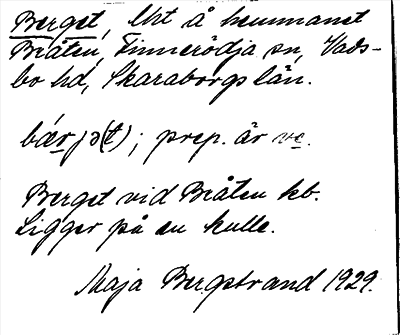 Berget, Urt å hemmanet
Bråten, Finnerödja sn, Vads-
bo hd, Skaraborgs län.
bærjə(t); prep. är ve.
Berget vid Bråten kb.
Ligger på en kulle.
Maja Bergstrand 1929.